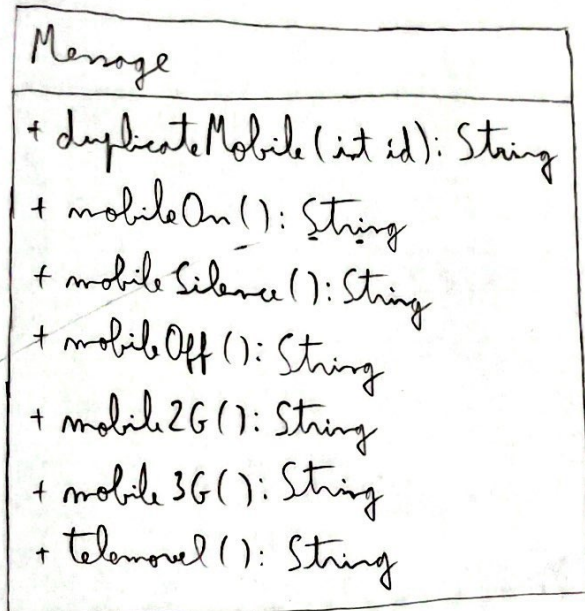 Message
+ duplicateMobile(int id): String
+ mobileOn(): String
+ mobileSilence(): String
+ mobileOff(): String
+ mobile2G(): String
+ mobile3G(): String
+ telemovel(): String